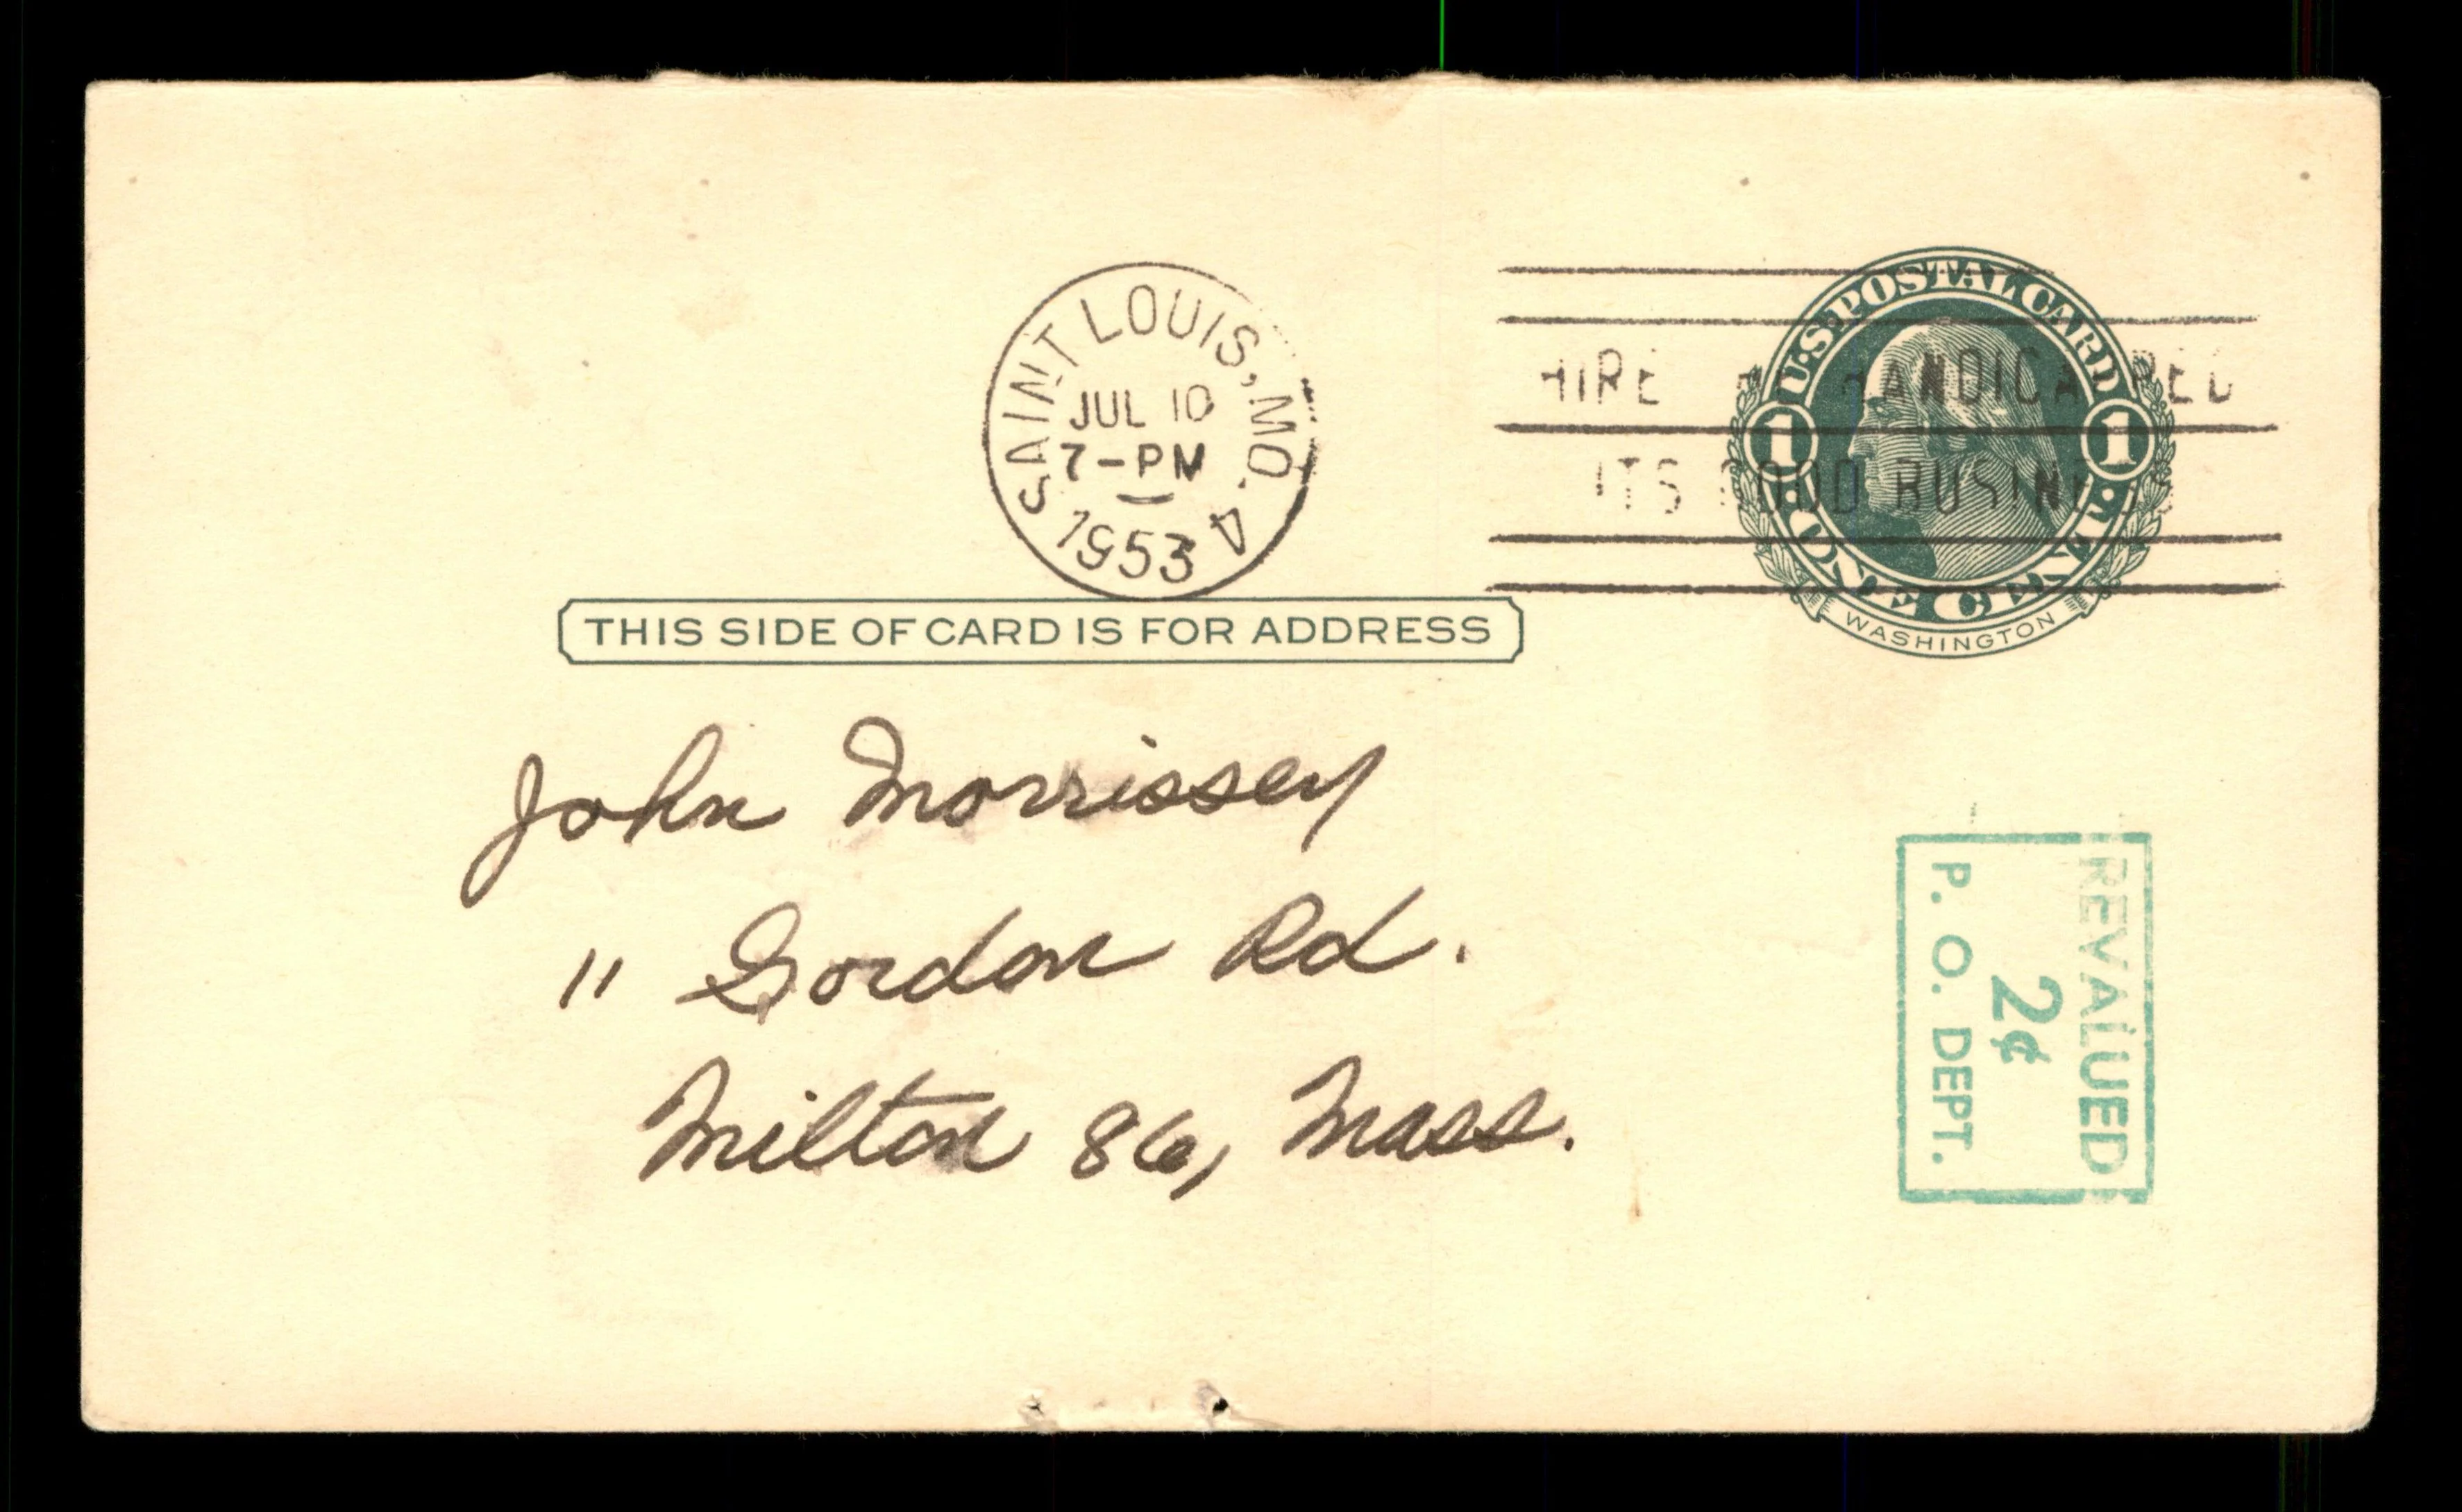 SAINT LOUIS, MO. 4
JUL 10
7-PM
1953
HIRE HANDICAPPED
ITS GOOD BUSINESS
U·S·POSTAL CARD
1 1
·ONE CENT·
WASHINGTON
THIS SIDE OF CARD IS FOR ADDRESS
John Morrissey
11 Gordon Rd.
Milton 86, Mass.
REVALUED
2¢
P. O. DEPT.